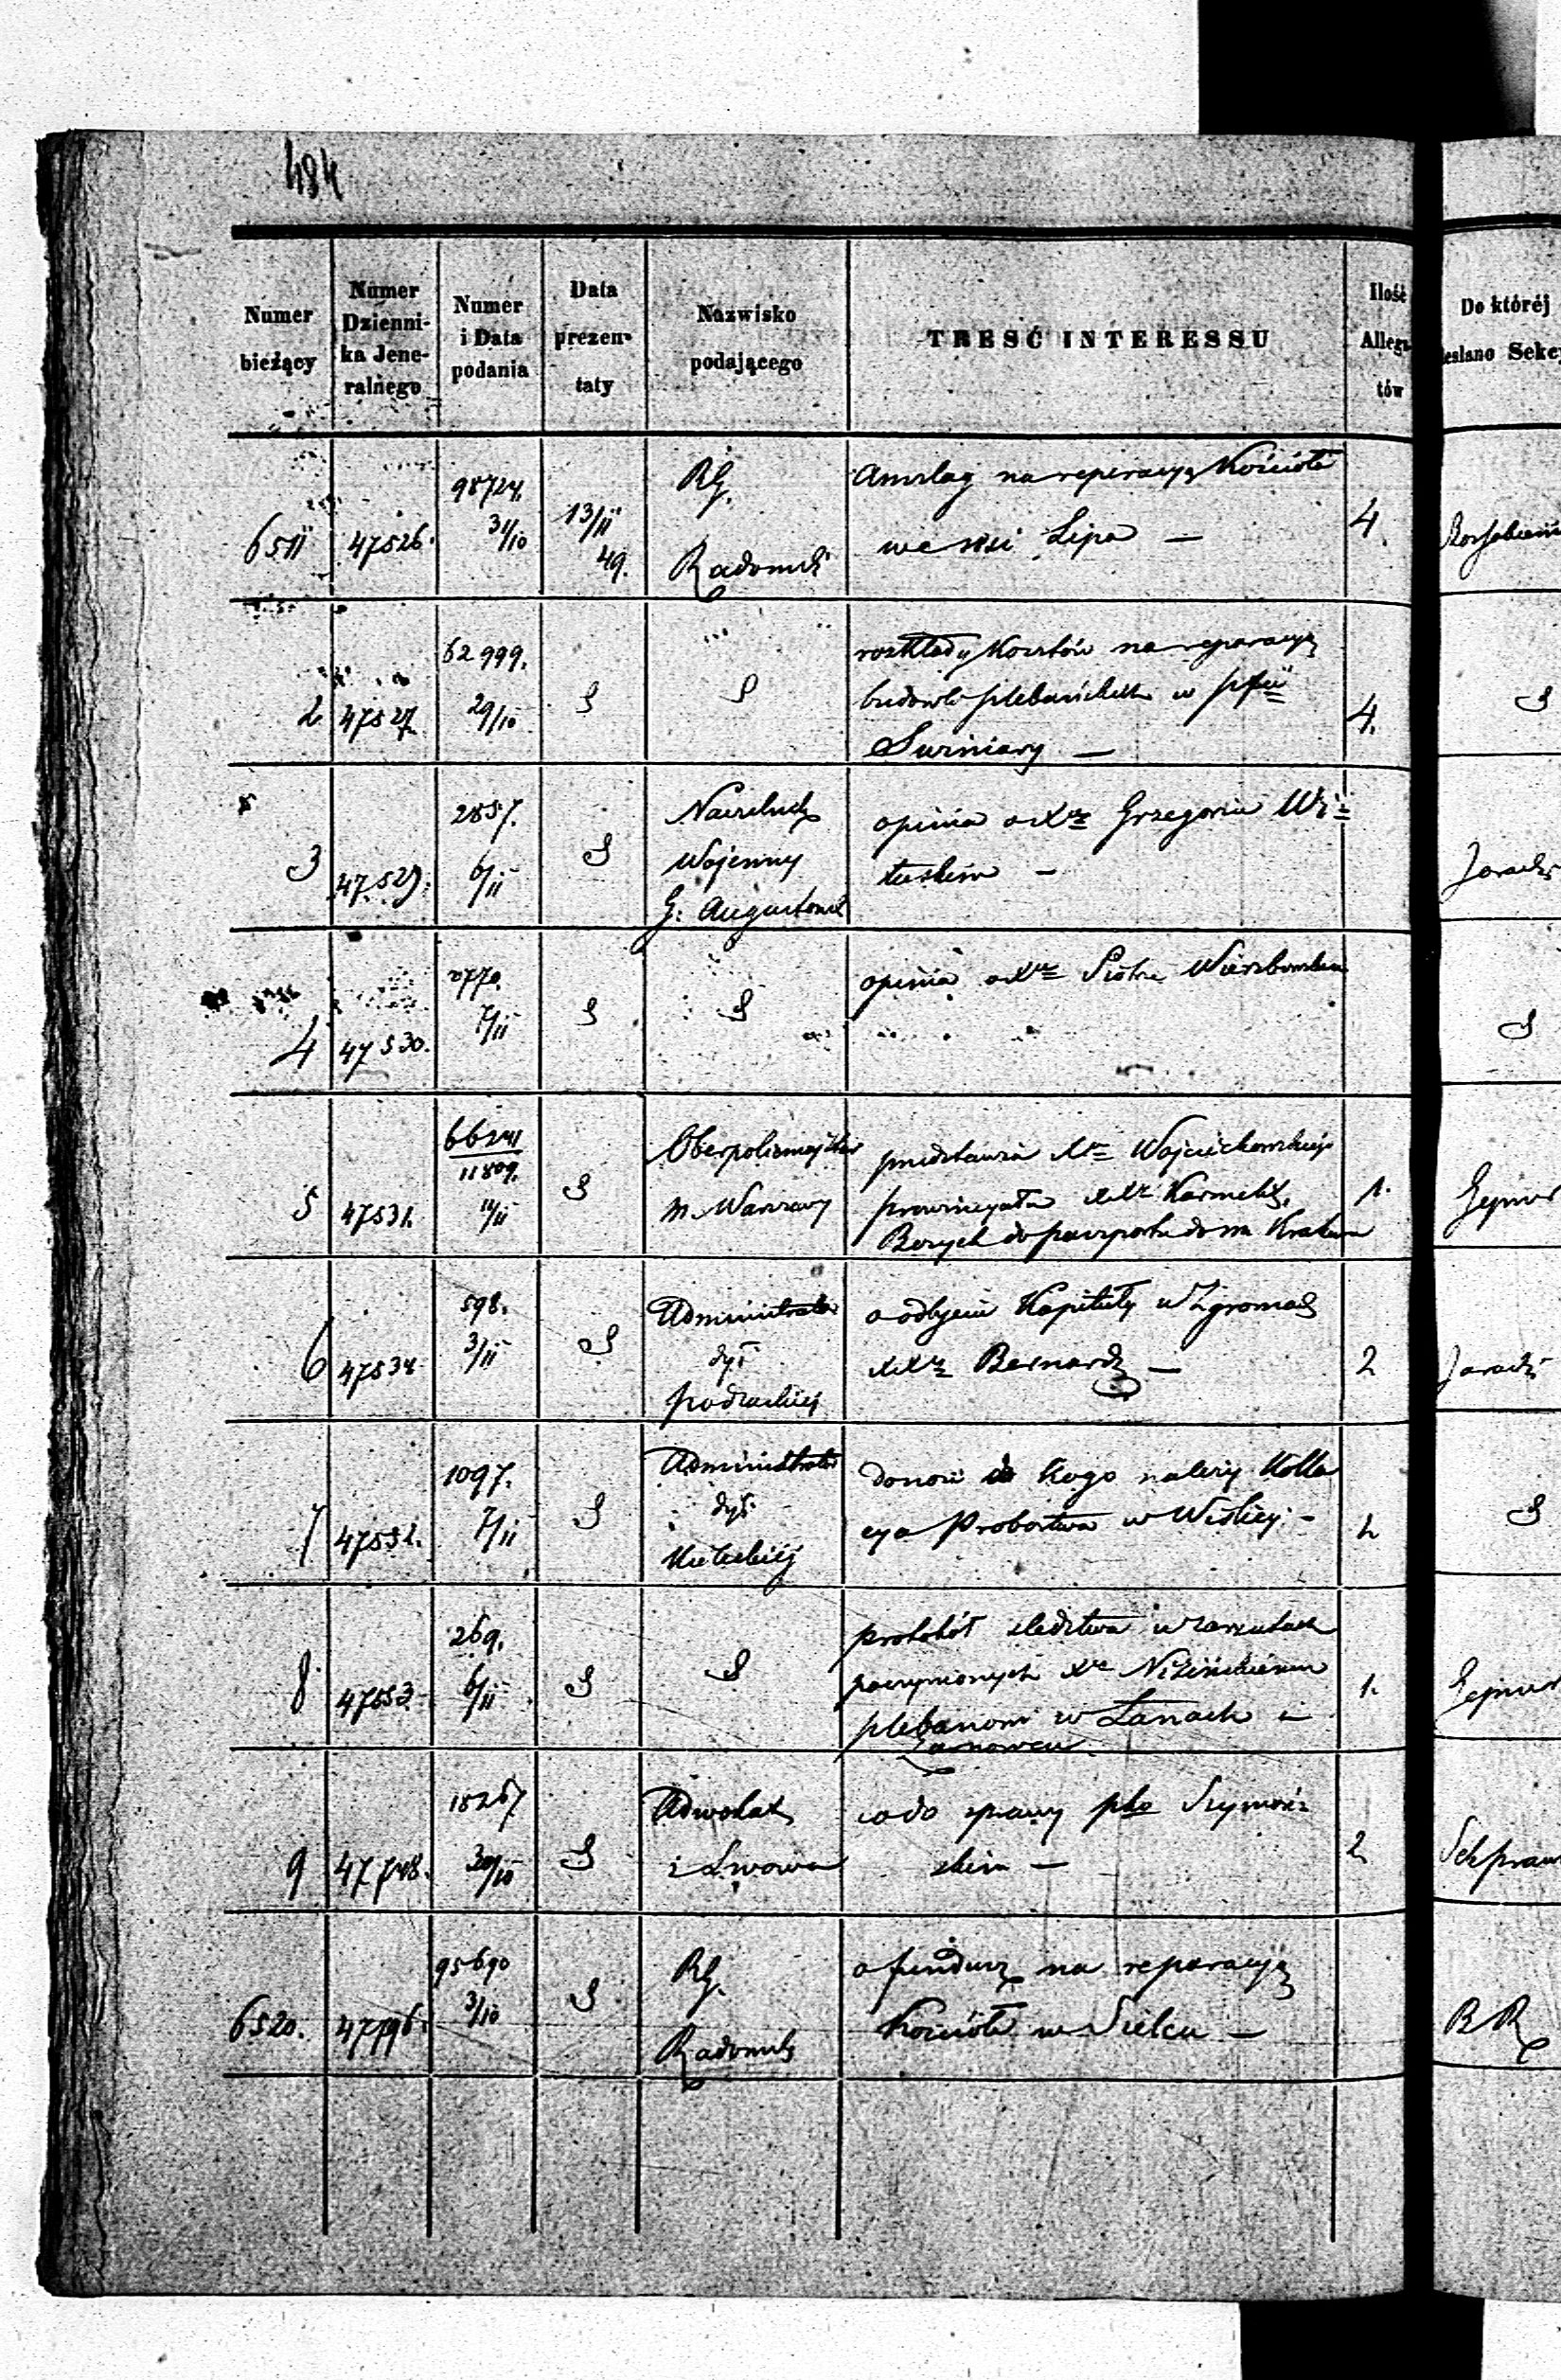 484
Numer bieżący
Numer Dzienni- ka Jene- ralnego
Numer i Data podania
Data prezen- taty
Nazwisko podającego
TREŚĆ INTERESSU
Ilość Allega- tów
Do któréj
esłano Sekcy
6511
47526.
98724.
31/10
13/11
49.
RG.
Radomsk
Anszlag na reperacyą Kościoła
we wsi Lipa —
4.
2
47527
62999.
29/10
S
S
rozkłady kosztów na reparacyą
budowli plebańskich w
Swiniary —
4.
S
3
47529.
2857.
6/11
S
Naczelnik
Wojenny
G. Augustowsk
opinia o Xdz Grzegorzu
4
47530.
7/11
S
S
opinia o Xdz Piotrze Wierzbowskim
S
5
47531.
11809.
11/11
S
Oberpolicmajster
m. Warszawy
przedstawia Xa Wojciechowskiego
prowincyała XXz Karmelit.
Bosych do paszportu do m Krakowa
1.
6
47534
598.
3/11
S
Administrator
dyi
podlaskiej
o odbyciu Kapituły w Zgromadz
XXz Bernard —
2
7
47532.
1097.
7/11
S
Administrator
dyi
Kieleckiej
donosi do kogo należy Kolla
cya Probostwa w Wiślicy —
2
S
8
47533
269.
6/11
S
S
protokół śledztwa w zarzutach
poczynionych Xdz
plebanom w Łanach i
1.
9
47748.
18267
30/10
S
Adwokat
z Lwowa
co do sprawy pko Szymań
skim —
2
6520.
47796.
95690
3/10
S
RG.
Radomsk
o fundusz na reparacyją
Kościoła w Sielcu —